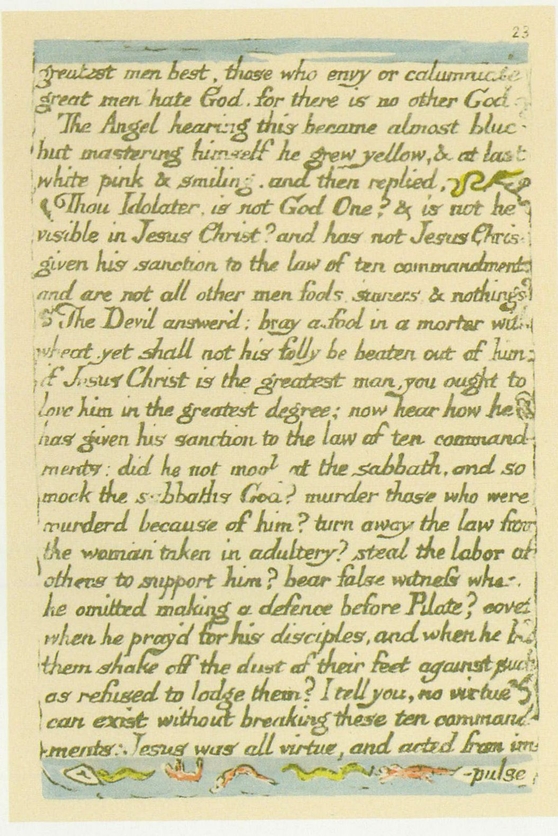 23
greatest men best, those who envy or calumniate
great men hate God, for there is no other God.
The Angel hearing this became almost blue
but mastering himself he grew yellow, & at last
white pink & smiling, and then replied,
Thou Idolater, is not God One? & is not he
visible in Jesus Christ? and has not Jesus Chris
given his sanction to the law of ten commandments
and are not all other men fools, sinners, & nothings
The Devil answerd; bray a fool in a morter with
wheat, yet shall not his folly be beaten out of him;
if Jesus Christ is the greatest man, you ought to
love him in the greatest degree; now hear how he
has given his sanction to the law of ten command-
ments: did he not mock at the sabbath, and so
mock the sabbaths God? murder those who were
murderd because of him? turn away the law from
the woman taken in adultery? steal the labor of
others to support him? bear false witness when
he omitted making a defence before Pilate? covet
when he pray'd for his disciples, and when he
them shake off the dust of their feet against such
as refused to lodge them? I tell you, no virtue
can exist without breaking these ten command-
ments: Jesus was all virtue, and acted from im-
-pulse